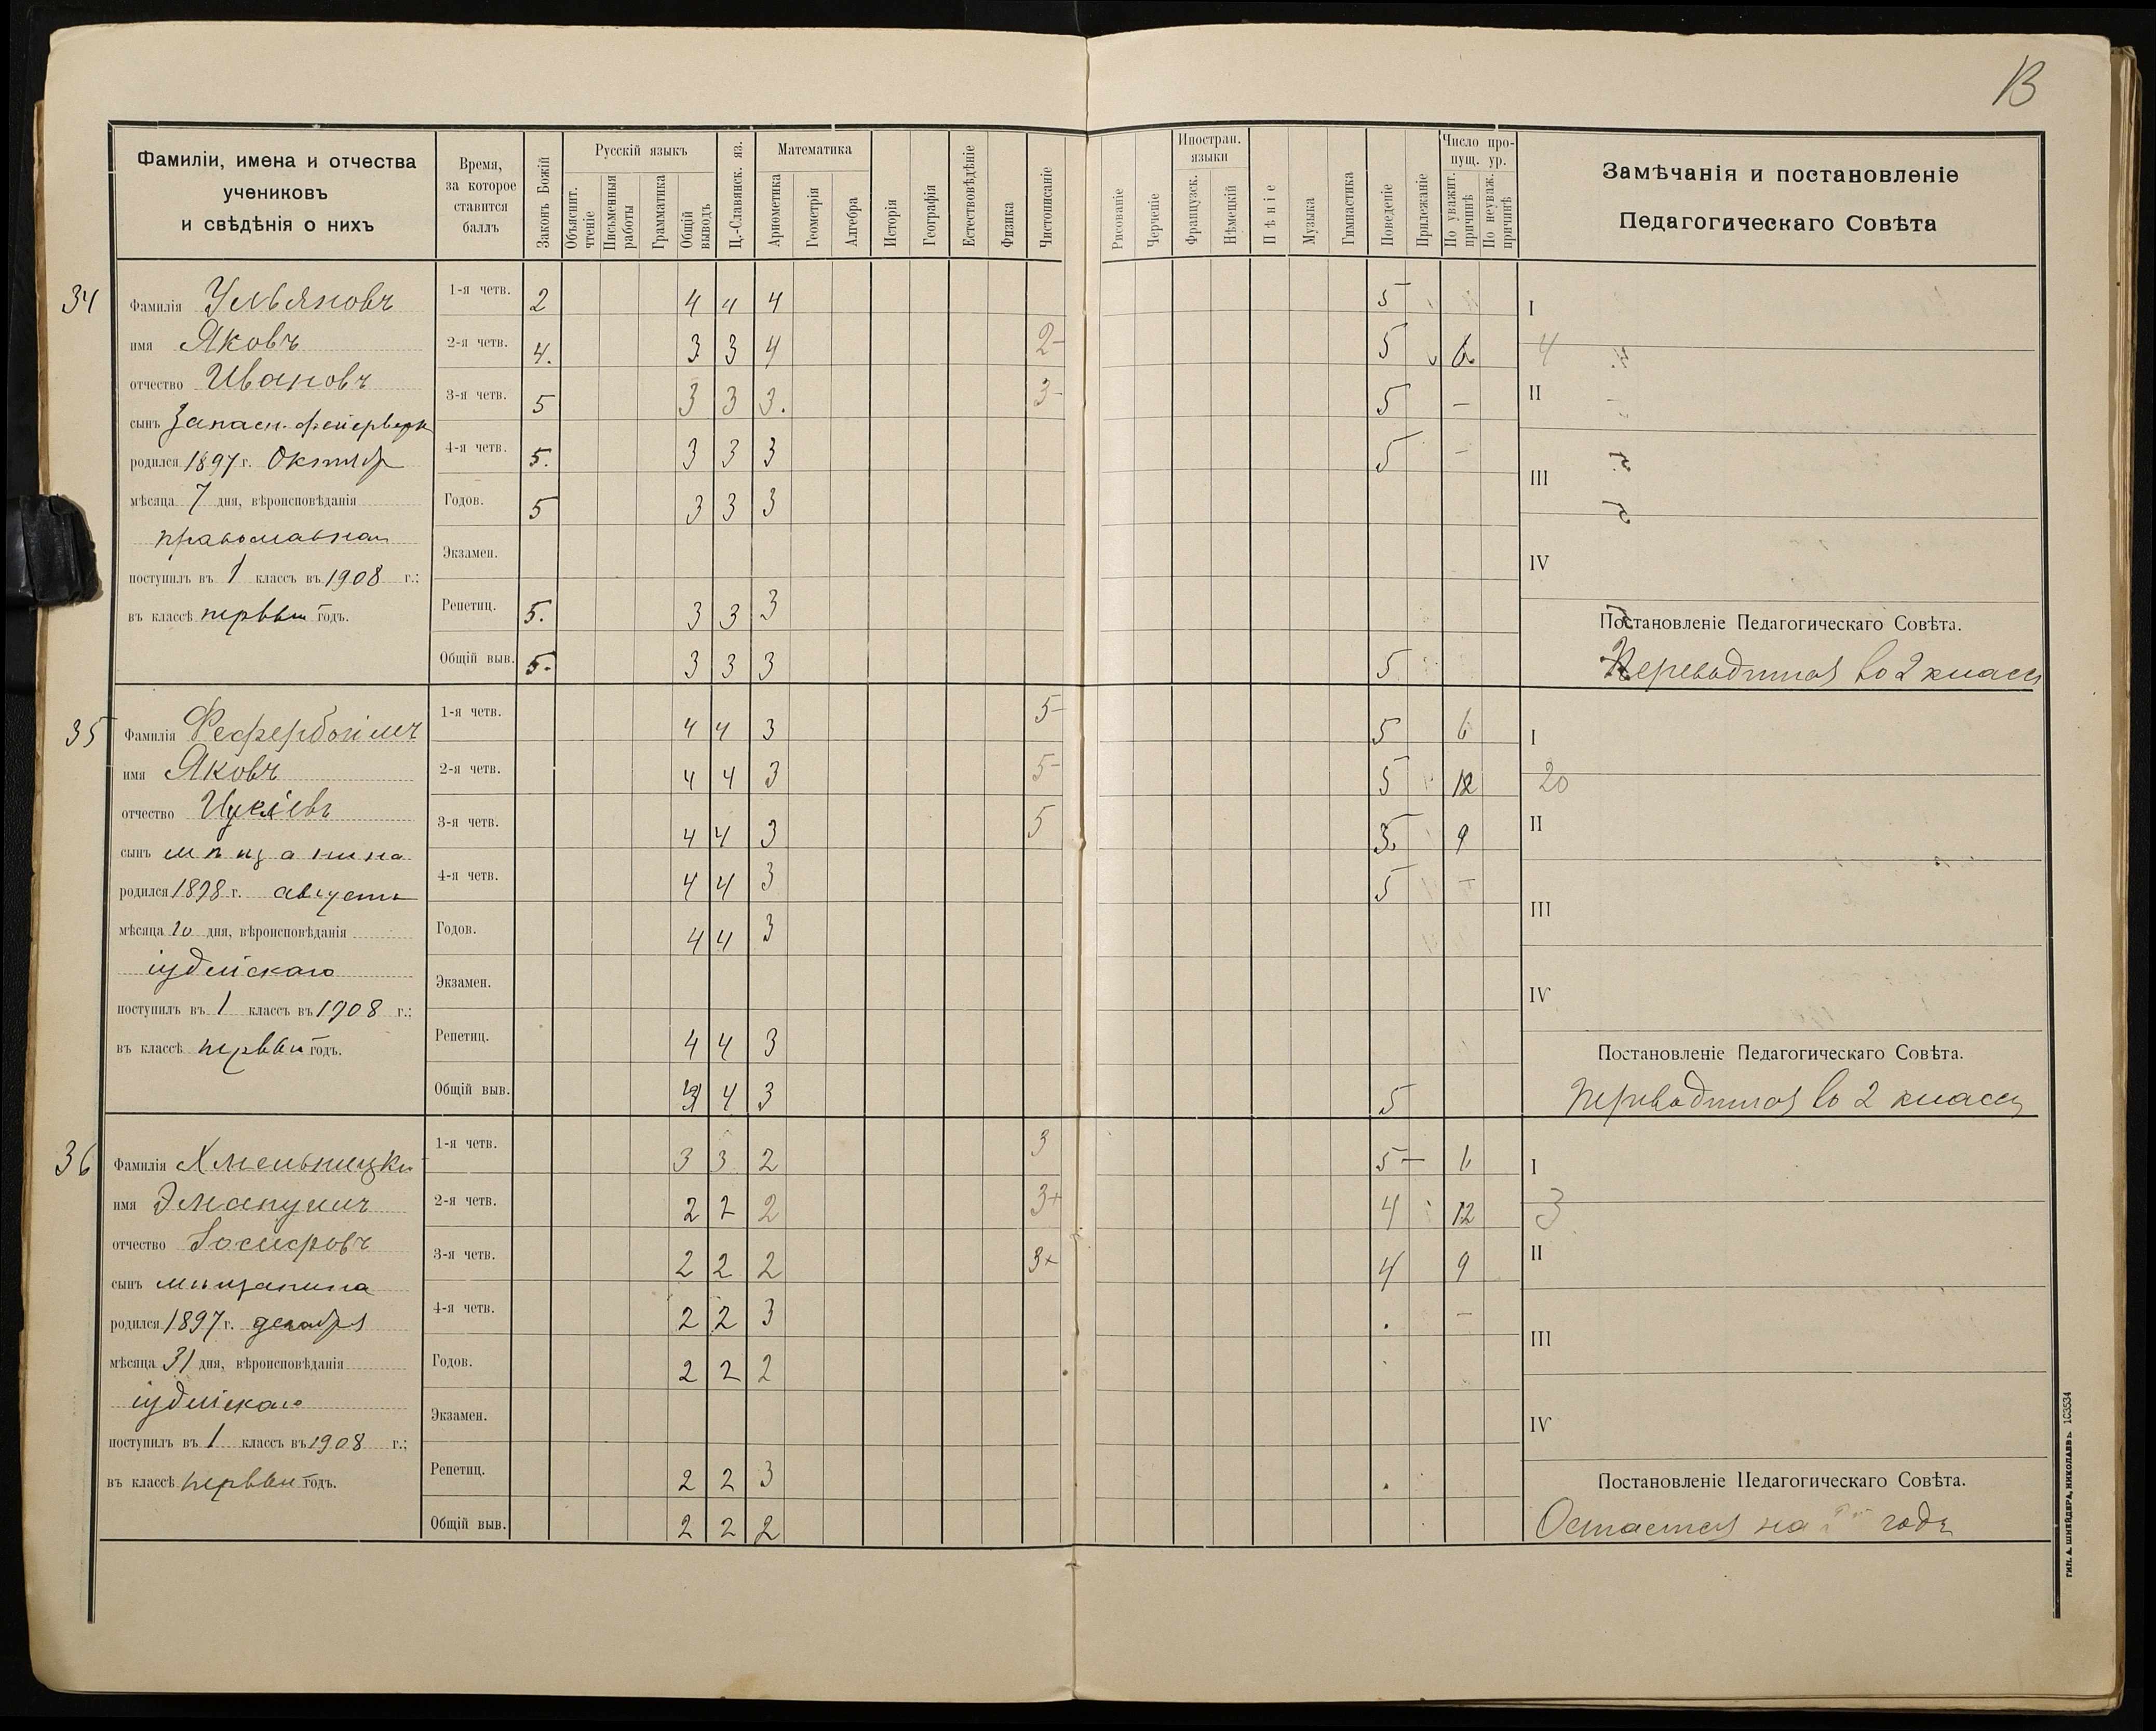 13
Фамиліи, имена и отчества
учениковъ
и свѣдѣнія о нихъ
Время,
за которое
ставится
баллъ
Законъ Божій
Русскій языкъ
Объяснит. чтеніе
Письменныя работы
Грамматика
Общій выводъ
Ц.-Славинск. яз.
Математика
Ариѳметика
Геометрія
Алгебра
Исторія
Географія
Естествовѣдѣніе
Физика
Чистописаніе
Рисованіе
Черченіе
Иностран. языки
Французск.
Нѣмецкій
Пѣніе
Музыка
Гимнастика
Поведеніе
Прилежаніе
Число пропущ. ур.
По уважит. причинѣ
По неуваж. причинѣ
Замѣчанія и постановленіе
Педагогическаго Совѣта
34
Фамилія Ульяновъ
имя Яковъ
отчество Ивановъ
сынъ Запасн. фейерверк
родился 1897 г. Октябр
мѣсяца 7 дня, вѣроисповѣданія
православнаг
поступилъ въ 1 классъ въ 1908 г.:
въ классѣ первый годъ.
1-я четв. 2 4 4 4 5
2-я четв. 4. 3 3 4 2- 5 6
3-я четв. 5 3 3 3. 3- 5 —
4-я четв. 5. 3 3 3 5 —
Годов. 5 3 3 3
Экзамен.
Репетиц. 5. 3 3 3
Общій выв. 5. 3 3 3 5
I
4
II
III
IV
Постановленіе Педагогическаго Совѣта.
Переводится во 2 классъ
35
Фамилія
имя Яковъ
отчество
сынъ мѣщанина
родился 1898 г. августъ
мѣсяца 20 дня, вѣроисповѣданія
іудейскаго
поступилъ въ 1 классъ въ 1908 г.;
въ классѣ первый годъ.
1-я четв. 4 4 3 5- 5 6
2-я четв. 4 4 3 5- 5 12
3-я четв. 4 4 3 5 5 9
4-я четв. 4 4 3 5 —
Годов. 4 4 3
Экзамен.
Репетиц. 4 4 3
Общій выв. 4 3 5
I
20
II
III
IV
Постановленіе Педагогическаго Совѣта.
Переводится во 2 классъ
36
Фамилія Хмельницкій
имя Эмануилъ
отчество Іосифовъ
сынъ мѣщанина
родился 1897 г. декабря
мѣсяца 31 дня, вѣроисповѣданія
іудейскаго
поступилъ въ 1 классъ въ 1908 г.;
въ классѣ первый годъ.
1-я четв. 3 3 2 3 5-
2-я четв. 2 2 2 3+ 4 12
3-я четв. 2 2 2 3+ 4 9
4-я четв. 2 2 3 —
Годов. 2 2 2
Экзамен.
Репетиц. 2 2 3
Общій выв. 2 2 2
I
3
II
III
IV
Постановленіе Педагогическаго Совѣта.
Остается на годъ
ТИП. А. ШНЕЙДЕРА, НИКОЛАЕВЪ. 103534